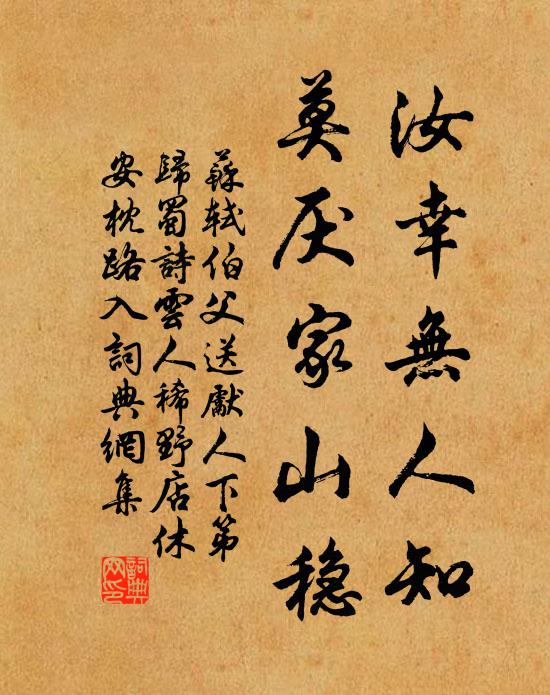 汝幸無人知
莫厌家山稳
蘇軾伯父送獻人下第
歸蜀詩雲人稀野店休
安枕路入詞典網集
詞典
网印